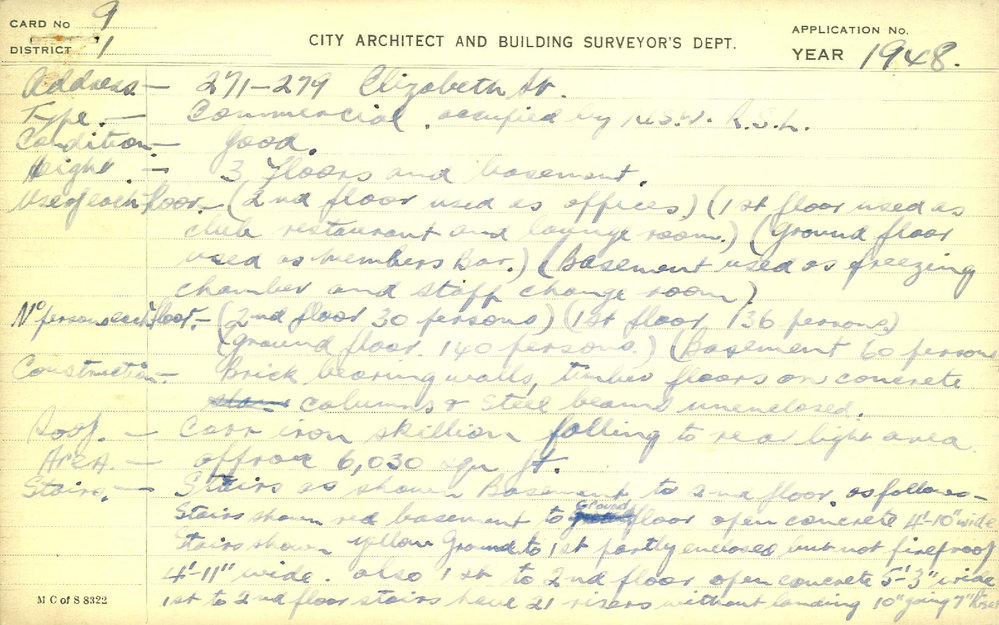 CARD No 9
DISTRICT 1
CITY ARCHITECT AND BUILDING SURVEYOR'S DEPT.
APPLICATION No.
YEAR 1948.
Address — 271-279 Elizabeth St.
Type. — Commercial. occupied by N.S.W. R.S.L.
Condition — Good.
Height. — 3 Floors and basement.
Use of each floor. — (2nd floor used as offices) (1st floor used as
club restaurant and lounge room.) (Ground floor
used as Members Bar.) (Basement used as freezing
chamber and staff change room)
No persons each floor. — (2nd floor 30 persons) (1st floor 136 persons)
(Ground floor. 140 persons.) (Basement 60 persons
Construction. — Brick bearing walls, timber floors on concrete
columns & Steel beams unenclosed.
Roof. — Corr iron skillion falling to rear light area.
Area. — approx 6,030 sqr ft.
Stairs. — Stairs as shown Basement to 2nd floor. as follows —
Stairs shown red basement to Ground floor open concrete 4'-10" wide
Stairs shown yellow Ground to 1st partly enclosed but not fireproof
4'-11" wide. also 1st to 2nd floor open concrete 5'-3" wide
1st to 2nd floor stairs have 21 risers without landing 10" going 7" Riser
M C of S 8322